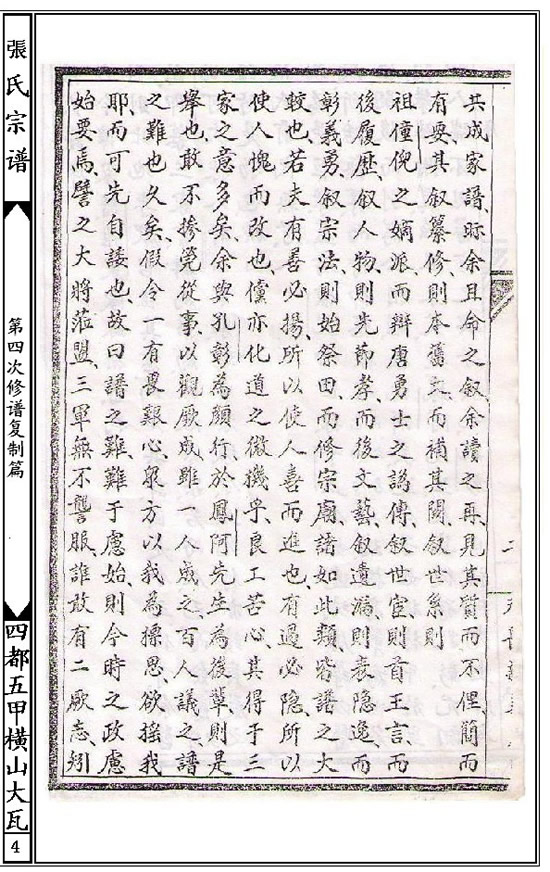 共成家譜、眎余且命之叙、余讀之再、見其質而不俚、簡而
有要、其叙纂修、則本舊文、而補其闕、叙世系、則
祖僮倪之嫡派、而辯唐勇士之訛傳、叙世宦、則首王言、而
後履歷、叙人物、則先節孝、而後文藝、叙遺漏、則表隐逸、而
彰義勇、叙宗法、則始祭田、而修宗廟、諸如此類、皆譜之大
較也、若夫有善必揚、所以使人善而進也、有過必隐、所以
使人愧而改也、儻亦化道之微機乎、良工苦心、其得于三
家之意多矣、余與孔彰為顏行、於鳳阿先生為後輩、則是
舉也、敢不摻筦從事、以觀厥成、雖一人成之、百人議之、譜
之難也久矣、假令一有畏艱心、衆方以我為標、思欲搖我
耶、而可先自諉也、故曰譜之難、難于慮始、則今時之政、慮
始要焉、譬之大將蒞盟、三軍無不讋服、誰敢有二厥志、矧
張氏宗谱
第四次修谱复制篇
四都五甲横山大瓦
4